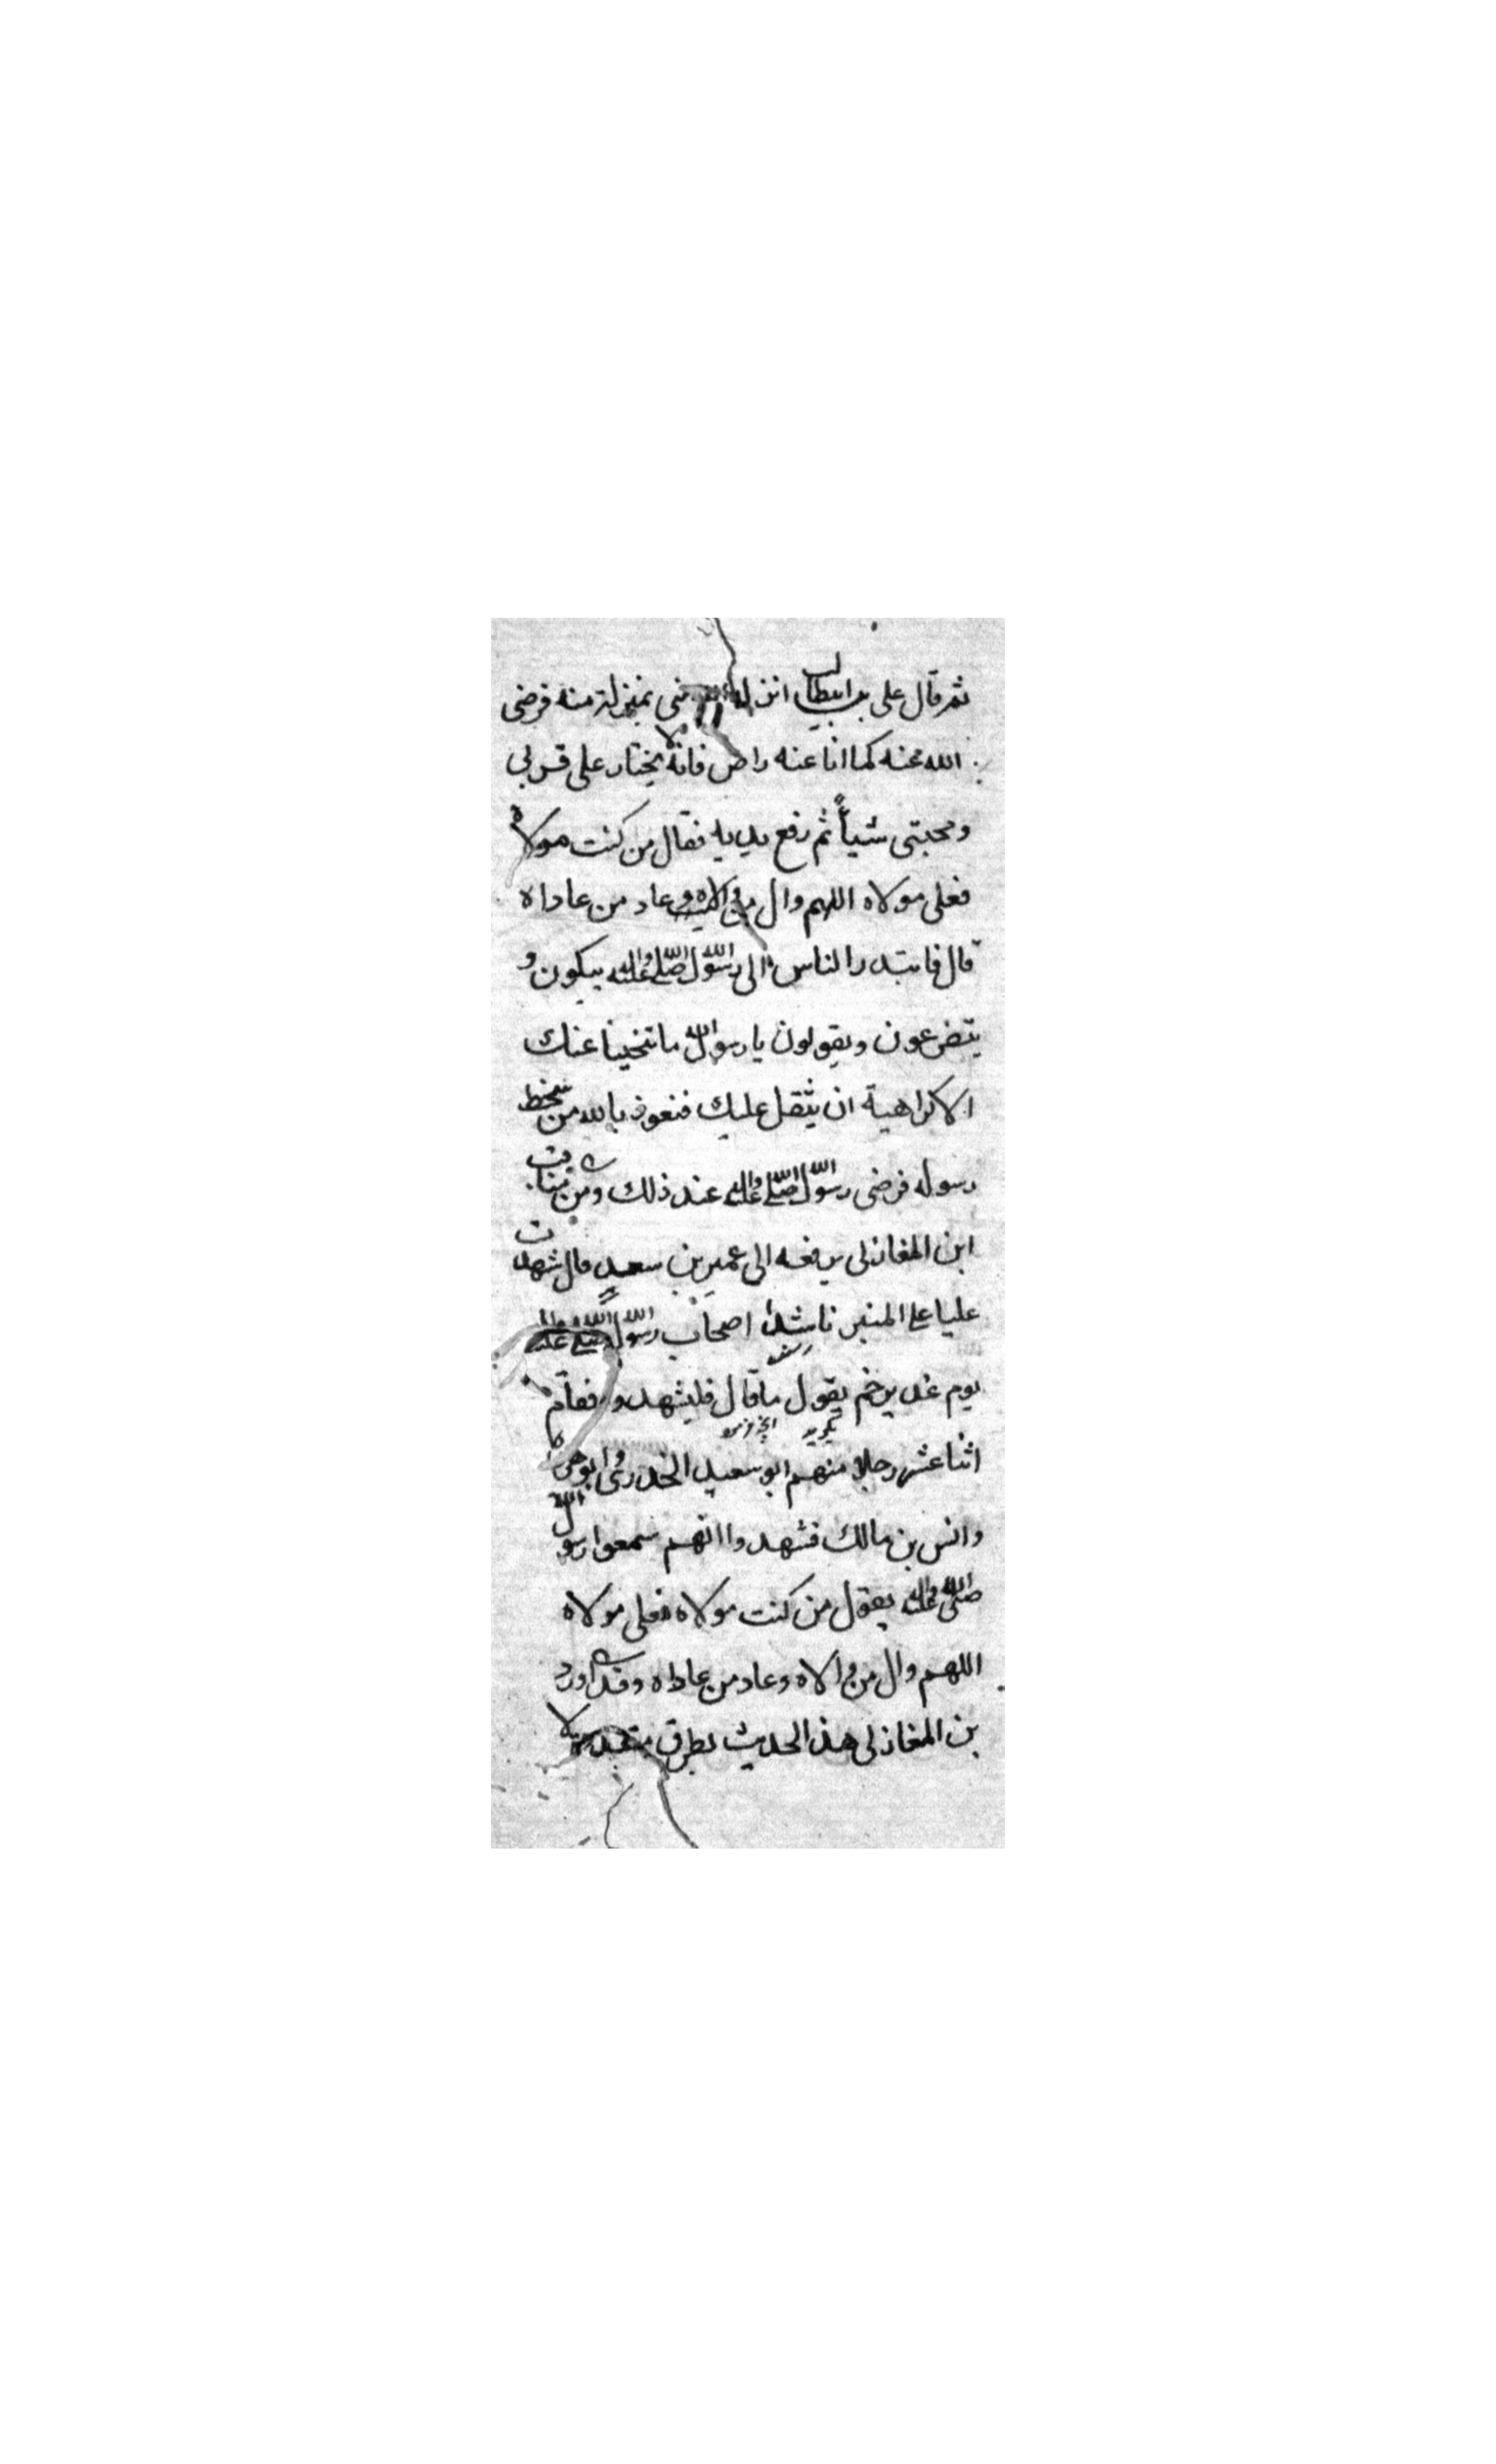 ثم قال على بن ابيطالب انزله الله منى بمنزلة منه فرضى
الله عنه كما انا عنه راض فانه لا يختار على قربى
ومحبتى شيأً ثم رفع يديه فقال من كنت مولاه
فعلى مولاه اللهم وال من والاه وعاد من عاداه
قال فابتدر الناس الى رسول الله صلى الله عليه واله يبكون و
يتضرعون ويقولون يا رسول الله ما تنحينا عنك
الا كراهية ان يثقل عليك فنعوذ بالله من سخط
رسوله فرضى رسول الله صلى الله عليه واله عند ذلك ومن مناقب
ابن المغازلى يرفعه الى عمير بن سعد قال شهدت
عليا على المنبر ناشدا اصحاب رسول الله صلى الله عليه واله
يوم غدير خم يقول ما قال فليشهد وا فقام
اثنا عشر رجلا منهم ابو سعيد الخدرى وابو هريرة
وانس بن مالك فشهدوا انهم سمعوا رسول الله
صلى الله عليه واله يقول من كنت مولاه فعلى مولاه
اللهم وال من والاه وعاد من عاداه وقد اورد
بن المغازلى هذ الحديث بطرق متعددة